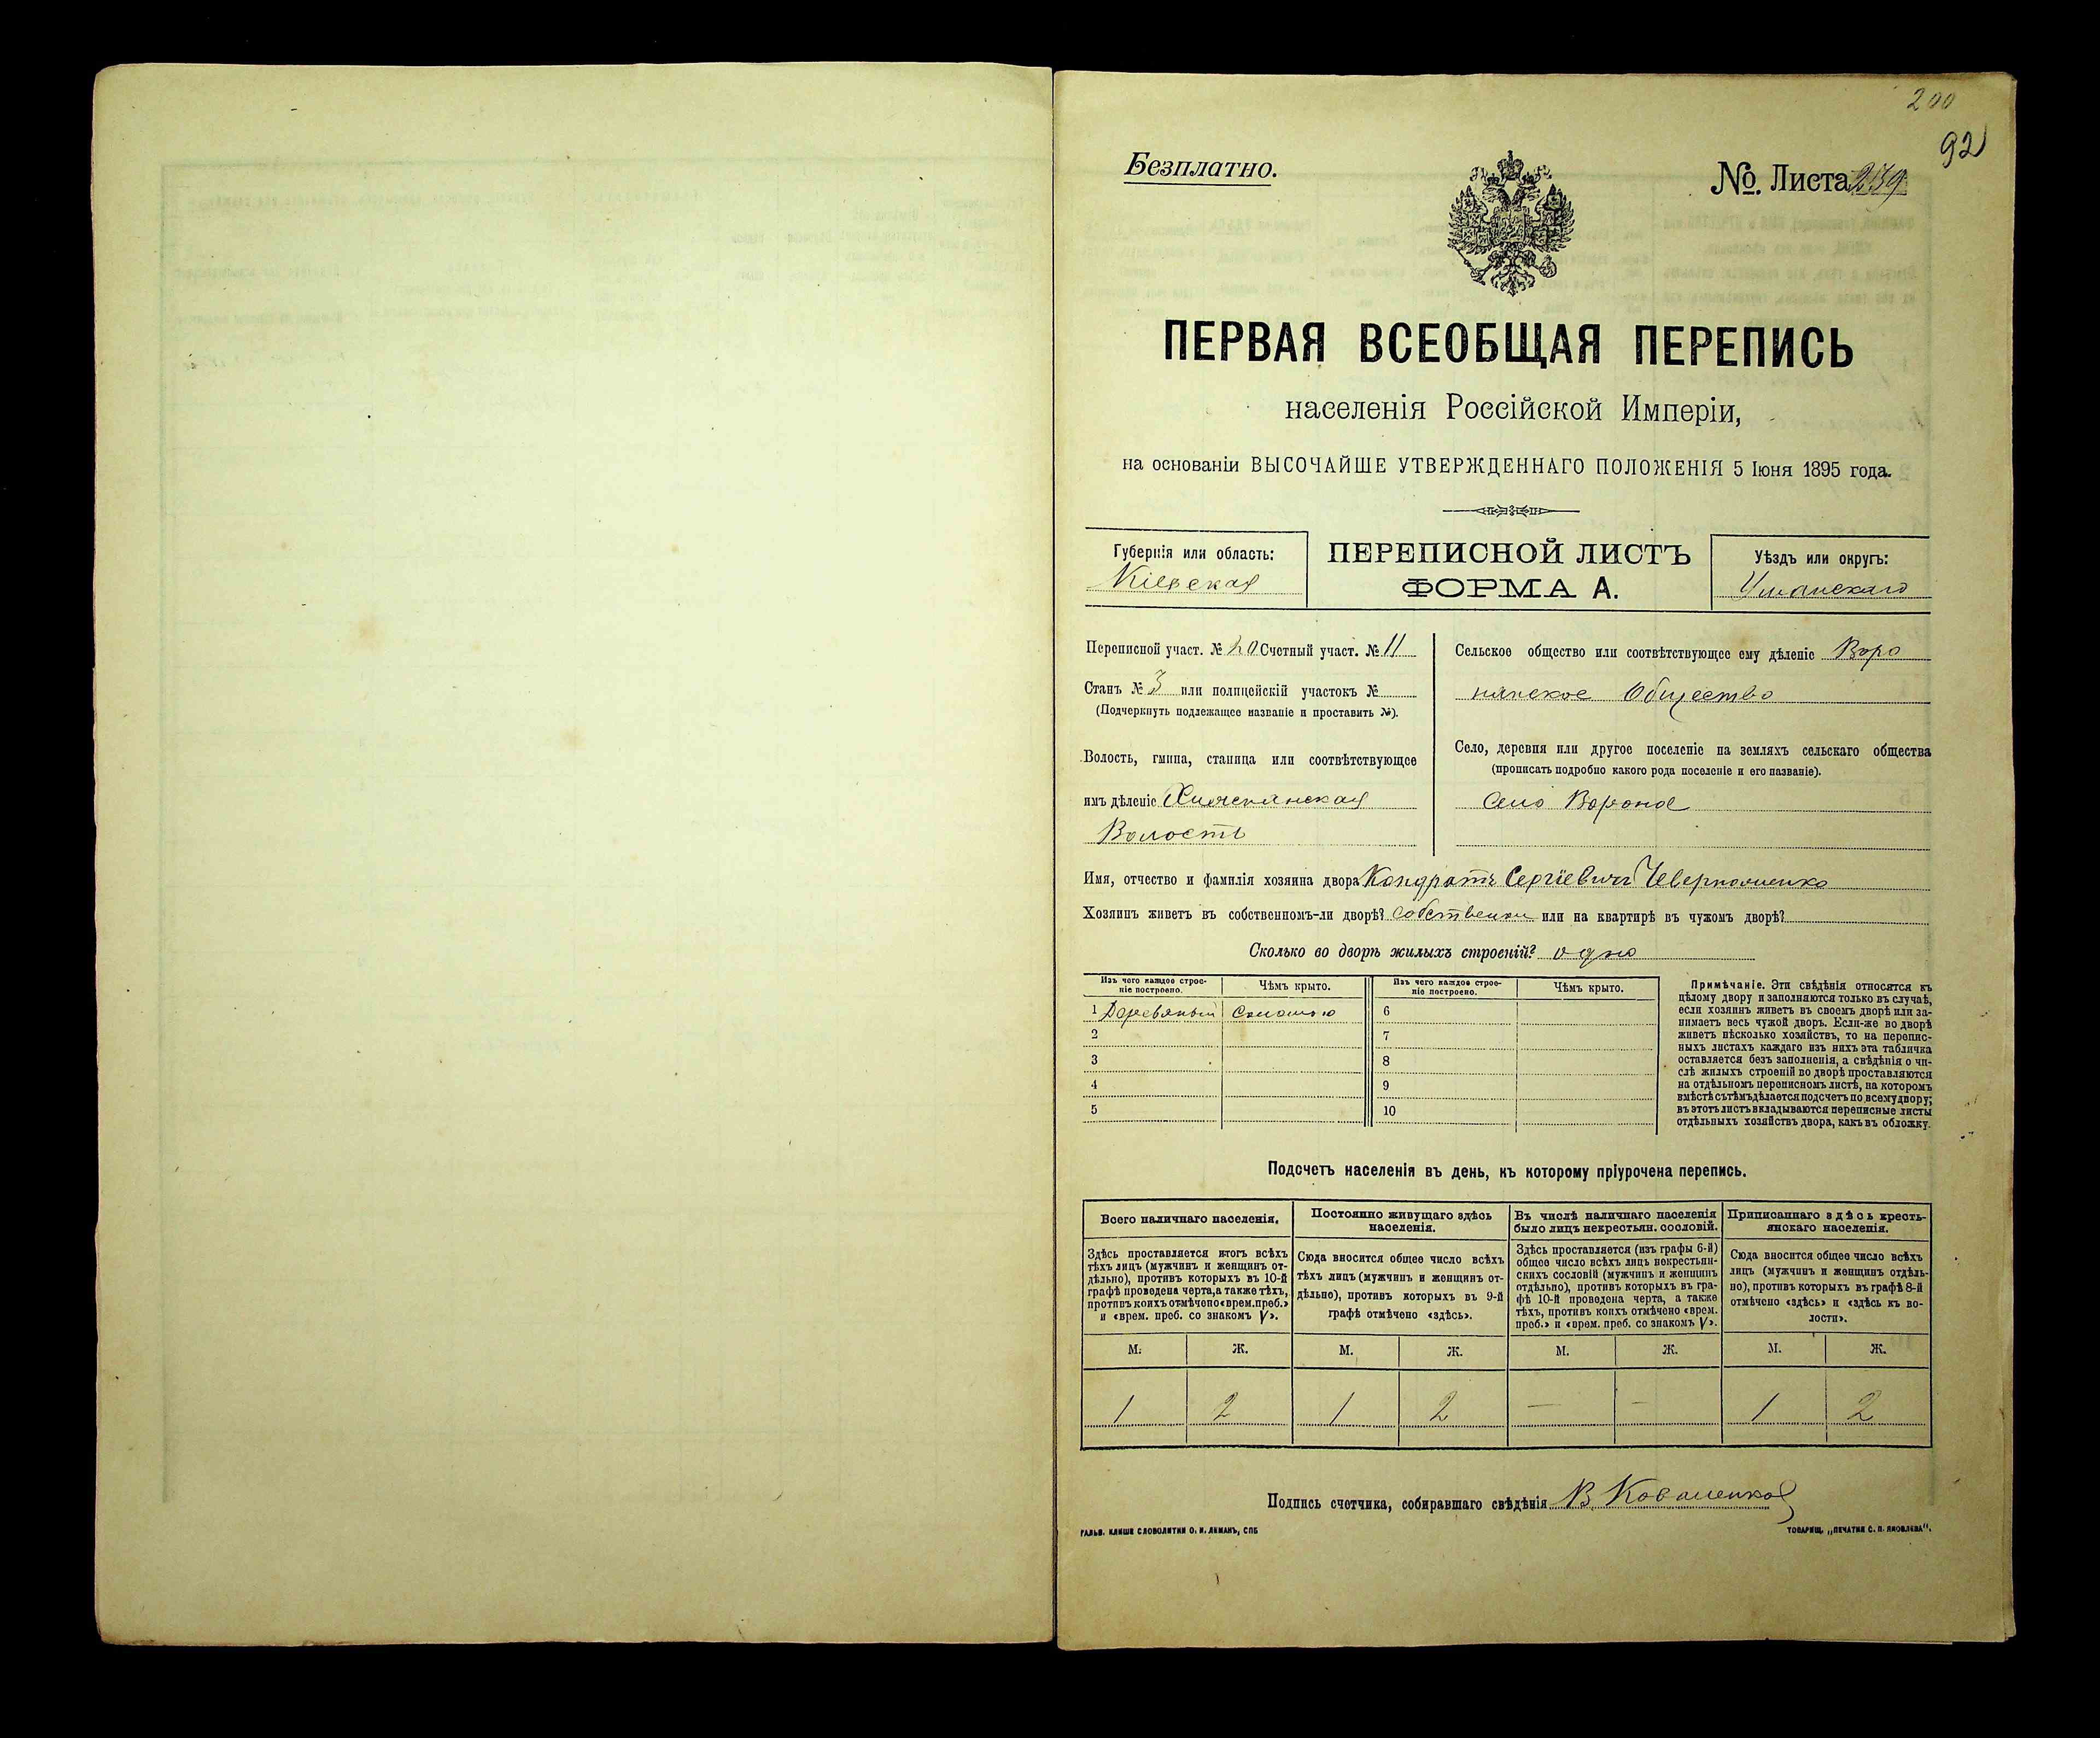 200
92
Безплатно.
№. Листа 239
ПЕРВАЯ ВСЕОБЩАЯ ПЕРЕПИСЬ
населенія Россійской Имперіи,
на основаніи ВЫСОЧАЙШЕ УТВЕРЖДЕННАГО ПОЛОЖЕНІЯ 5 Іюня 1895 года.
Губернія или область:
Кіевская
ПЕРЕПИСНОЙ ЛИСТЪ
ФОРМА А.
Уѣздъ или округъ:
Уманскаго
Переписной участ. № 20 Счетный участ. № 11
Станъ № 3 или полицейскій участокъ №
(Подчеркнуть подлежащее названіе и проставить №).
Волость, гмина, станица или соотвѣтствующее
имъ дѣленіе
Волость
Сельское общество или соотвѣтствующее ему дѣленіе Воро
нянское Общество
Село, деревня или другое поселеніе на земляхъ сельскаго общества
(прописать подробно какого рода поселеніе и его названіе).
Село Вороное
Имя, отчество и фамилія хозяина двора Кондратъ Сергіевичъ
Хозяинъ живетъ въ собственномъ-ли дворѣ? собственном или на квартирѣ въ чужомъ дворѣ?
Сколько во дворѣ жилыхъ строеній? одно
Изъ чего каждое строе-
ніе построено.
Чѣмъ крыто.
Изъ чего каждое строе-
ніе построено.
Чѣмъ крыто.
1 Деревяный Соломою 6
2 7
3 8
4 9
5 10
Примѣчаніе. Эти свѣдѣнія относятся къ
цѣлому двору и заполняются только въ случаѣ,
если хозяинъ живетъ въ своемъ дворѣ или за-
нимаетъ весь чужой дворъ. Если-же во дворѣ
живетъ нѣсколько хозяйствъ, то на перепис-
ныхъ листахъ каждаго изъ нихъ эта табличка
оставляется безъ заполненія, а свѣдѣнія о чи-
слѣ жилыхъ строеній во дворѣ проставляются
на отдѣльномъ переписномъ листѣ, на которомъ
вмѣстѣ съ тѣмъ дѣлается подсчетъ по всему двору;
въ этотъ листъ вкладываются переписные листы
отдѣльныхъ хозяйствъ двора, какъ въ обложку.
Подсчетъ населенія въ день, къ которому пріурочена перепись.
Всего наличнаго населенія.
Здѣсь проставляется итогъ всѣхъ
тѣхъ лицъ (мужчинъ и женщинъ от-
дѣльно), противъ которыхъ въ 10-й
графѣ проведена черта, а также тѣхъ,
противъ коихъ отмѣчено «врем. преб.»
и «врем. преб. со знакомъ V».
Постоянно живущаго здѣсь
населенія.
Сюда вносится общее число всѣхъ
тѣхъ лицъ (мужчинъ и женщинъ от-
дѣльно), противъ которыхъ въ 9-й
графѣ отмѣчено «здѣсь».
Въ числѣ наличнаго населенія
было лицъ некрестьян. сословій.
Здѣсь проставляется (изъ графы 6-й)
общее число всѣхъ лицъ некрестьян-
скихъ сословій (мужчинъ и женщинъ
отдѣльно), противъ которыхъ въ гра-
фѣ 10-й проведена черта, а также
тѣхъ, противъ коихъ отмѣчено «врем.
преб.» и «врем. преб. со знакомъ V».
Приписаннаго здѣсь кресть-
янскаго населенія.
Сюда вносится общее число всѣхъ
лицъ (мужчинъ и женщинъ отдѣль-
но), противъ которыхъ въ графѣ 8-й
отмѣчено «здѣсь» и «здѣсь къ во-
лости».
М. Ж. М. Ж. М. Ж. М. Ж.
1 2 1 2 — — 1 2
Подпись счетчика, собиравшаго свѣдѣнія В Коваленко
ГАЛЬВ. КЛИШЕ СЛОВОЛИТНИ О. И. ЛЕМАНЪ, СПБ
ТОВАРИЩ. „ПЕЧАТНЯ С. П. ЯКОВЛЕВА“.